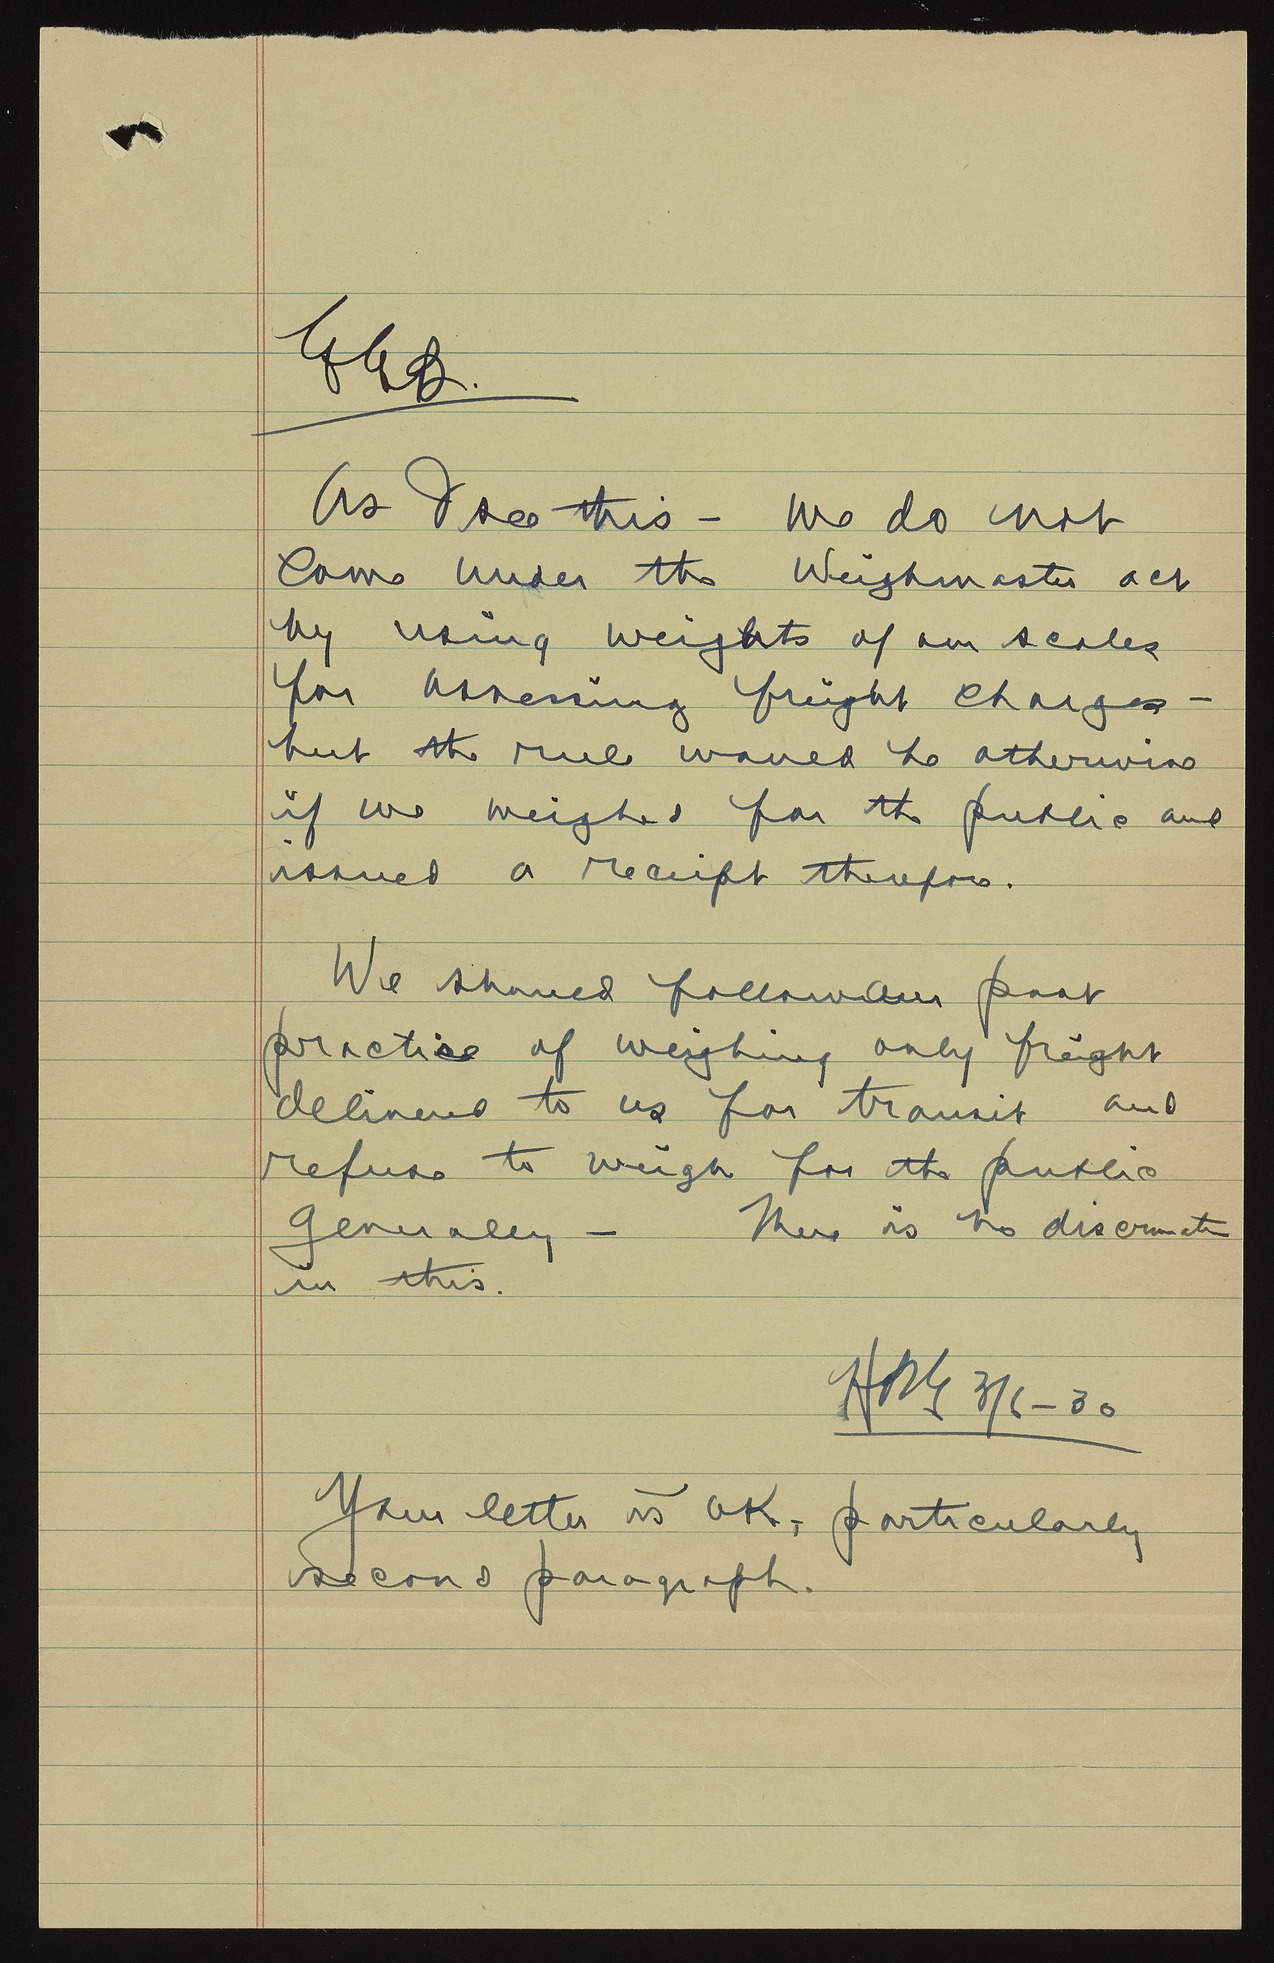 As I see this - We do not
come under the Weighmaster act
by using weights of our scales
for assessing freight charges -
but the rule would be otherwise
if we weighed for the public and
issued a receipt therefore.
We should follow our past
practice of weighing only freight
delivered to us for transit and
refuse to weigh for the public
generally - There is no
in this.
3/6-30
Your letter is OK, particularly
second paragraph.